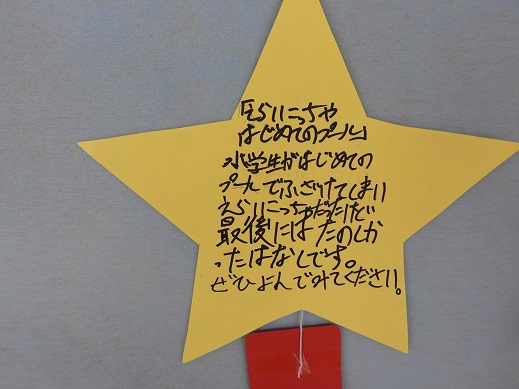 「えらいこっちゃ
はじめてのプール」
小学生がはじめての
プールでふざけてしまい
えらいこっちゃだったけど
最後にはたのしか
ったはなしです。
ぜひよんでみてください。